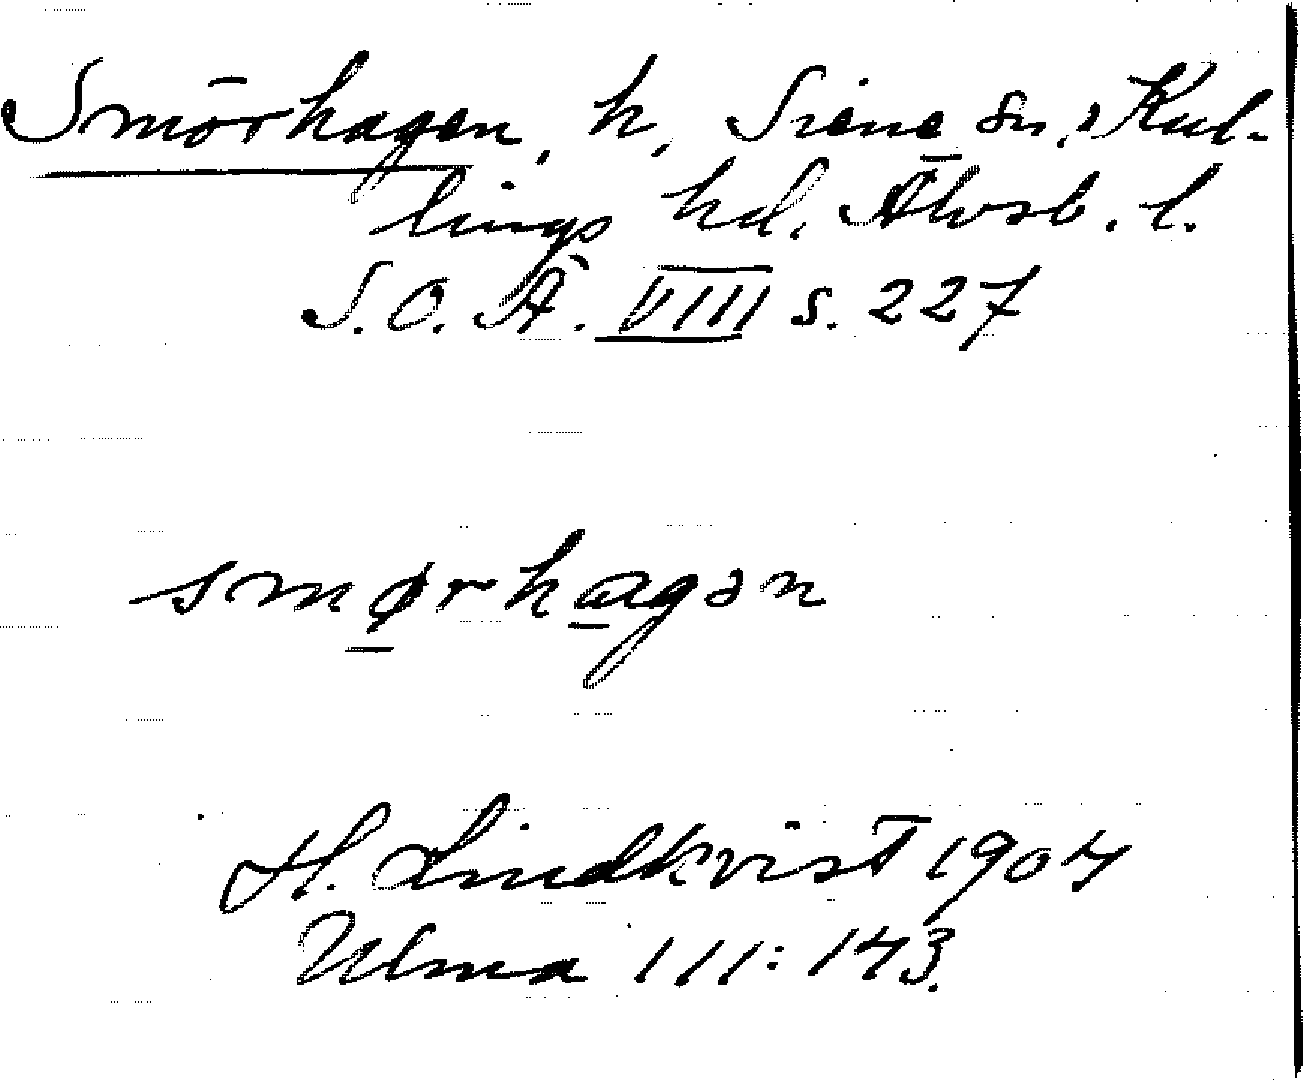 Smörhagen, h, Siene sn., Kul-
lings hd. Älvsb. l.
S.O.Ä. VIII s. 227
smørhagən
H. Lindkvist 1904
Ulma 111:143.